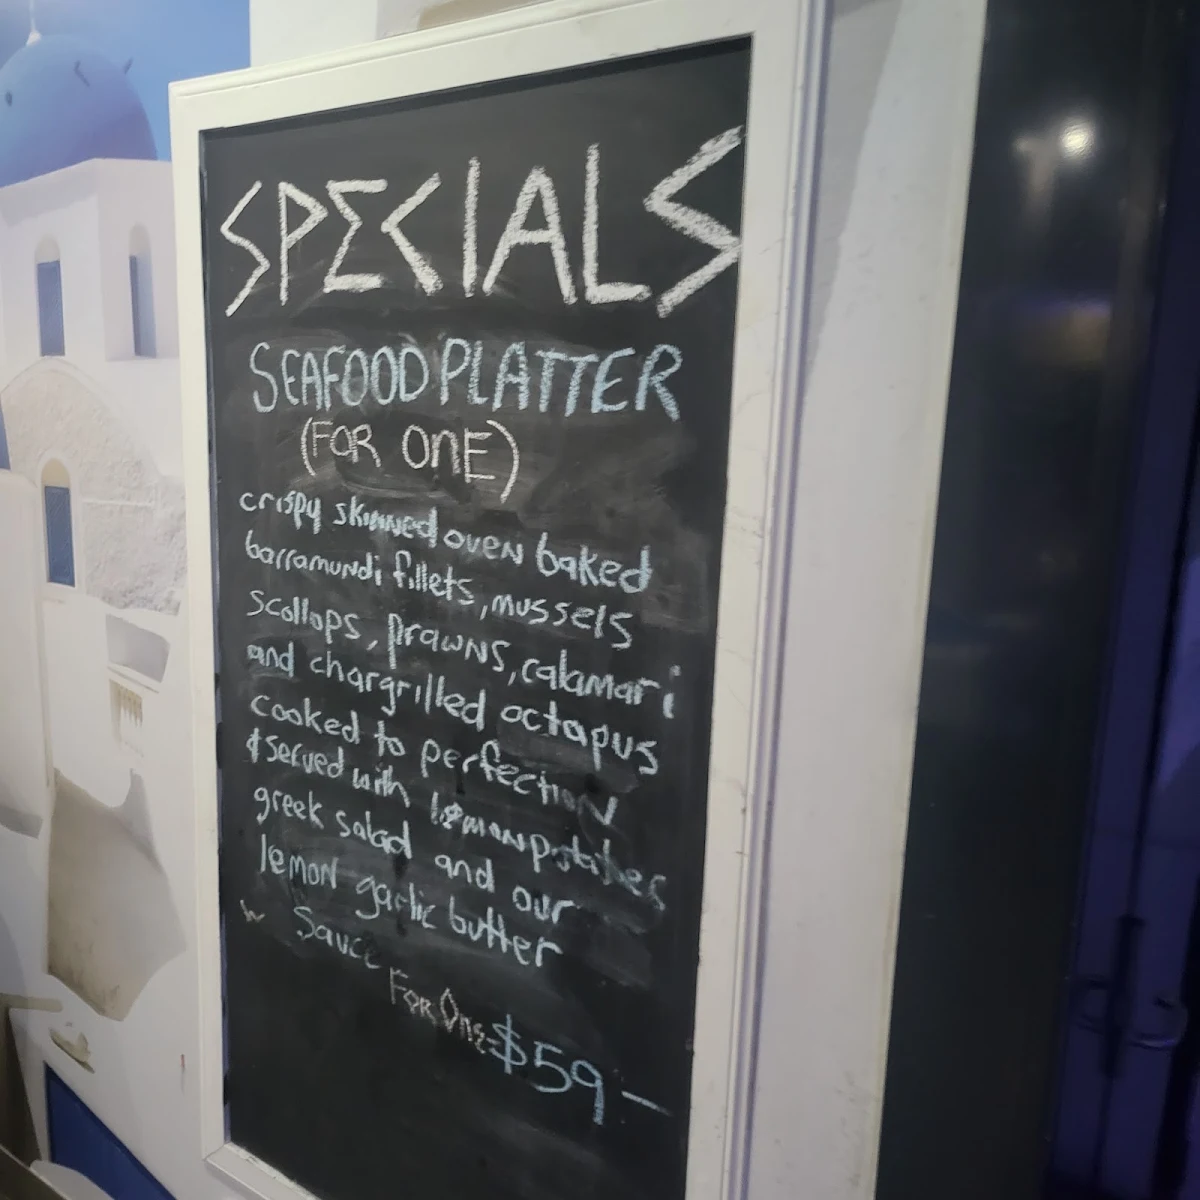 SPECIALS
SEAFOOD PLATTER
(FOR ONE)
crispy skinned oven baked
barramundi fillets, mussels
scollops, prawns, calamari
and chargrilled octapus
cooked to perfection
& served with lemon potatoes
greek salad and our
lemon garlic butter
Sauce
FOR ONE-$59-